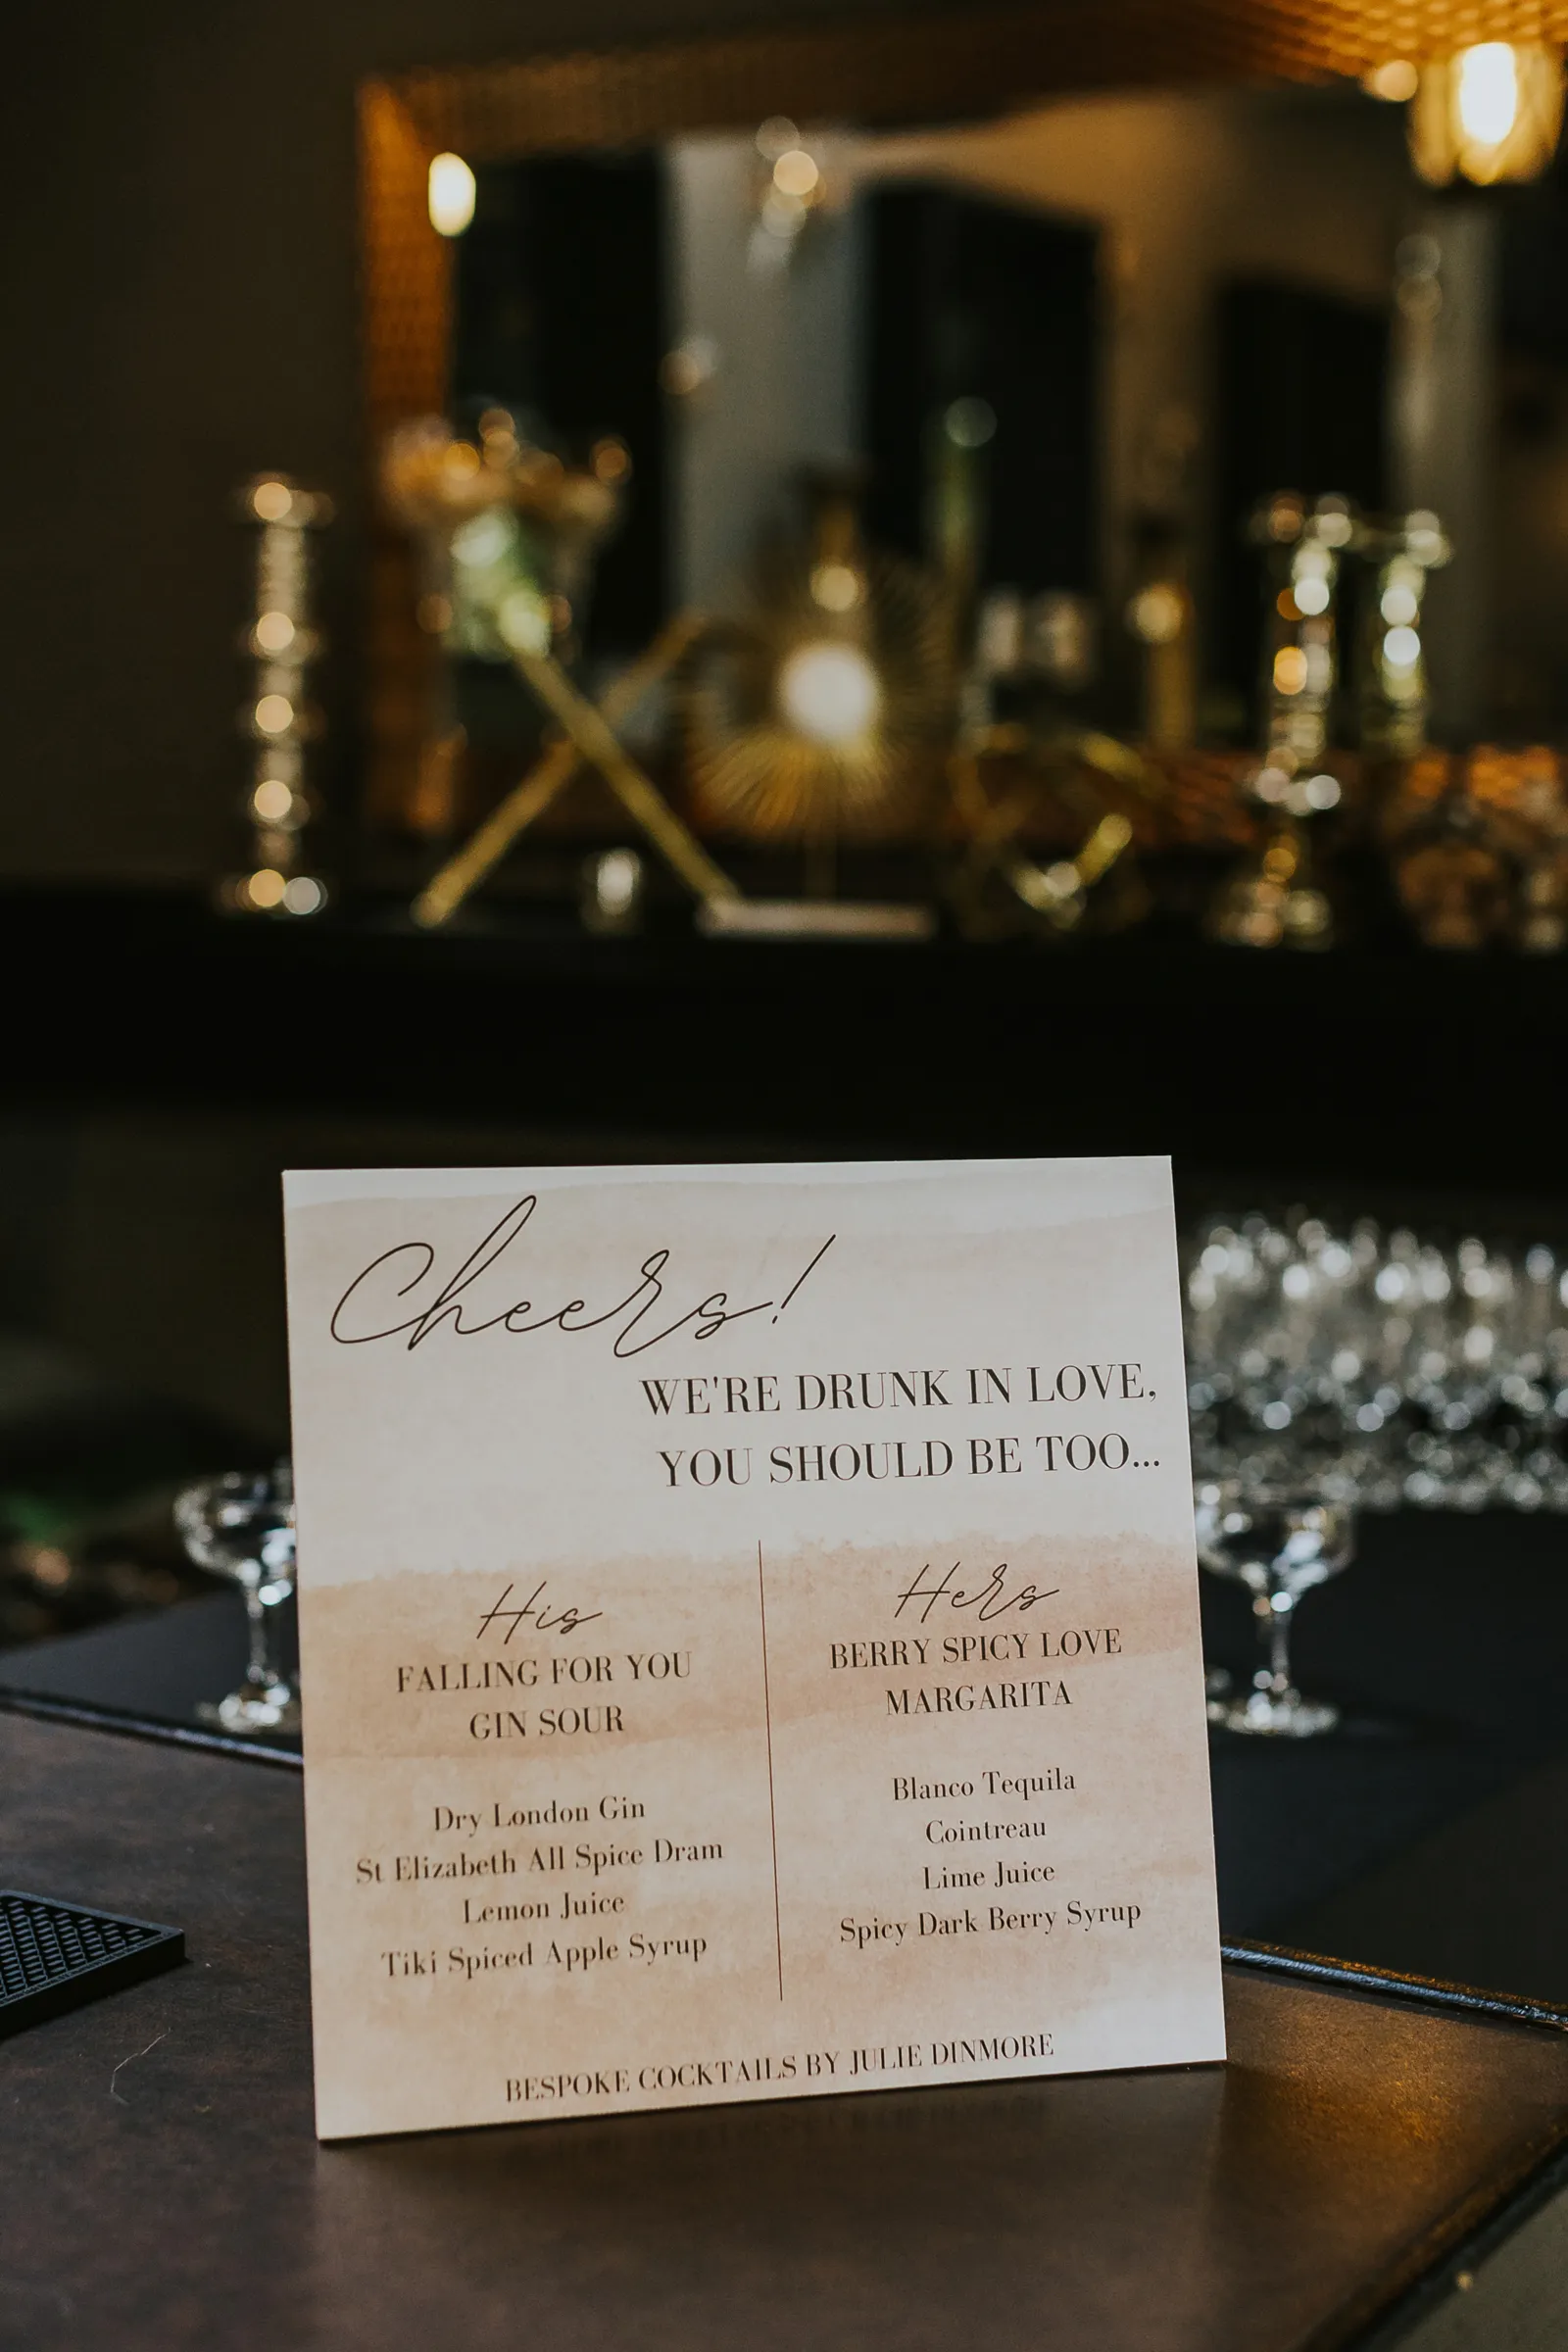 Cheers!
WE'RE DRUNK IN LOVE,
YOU SHOULD BE TOO...
His
FALLING FOR YOU
GIN SOUR
Dry London Gin
St Elizabeth All Spice Dram
Lemon Juice
Tiki Spiced Apple Syrup
Hers
BERRY SPICY LOVE
MARGARITA
Blanco Tequila
Cointreau
Lime Juice
Spicy Dark Berry Syrup
BESPOKE COCKTAILS BY JULIE DINMORE